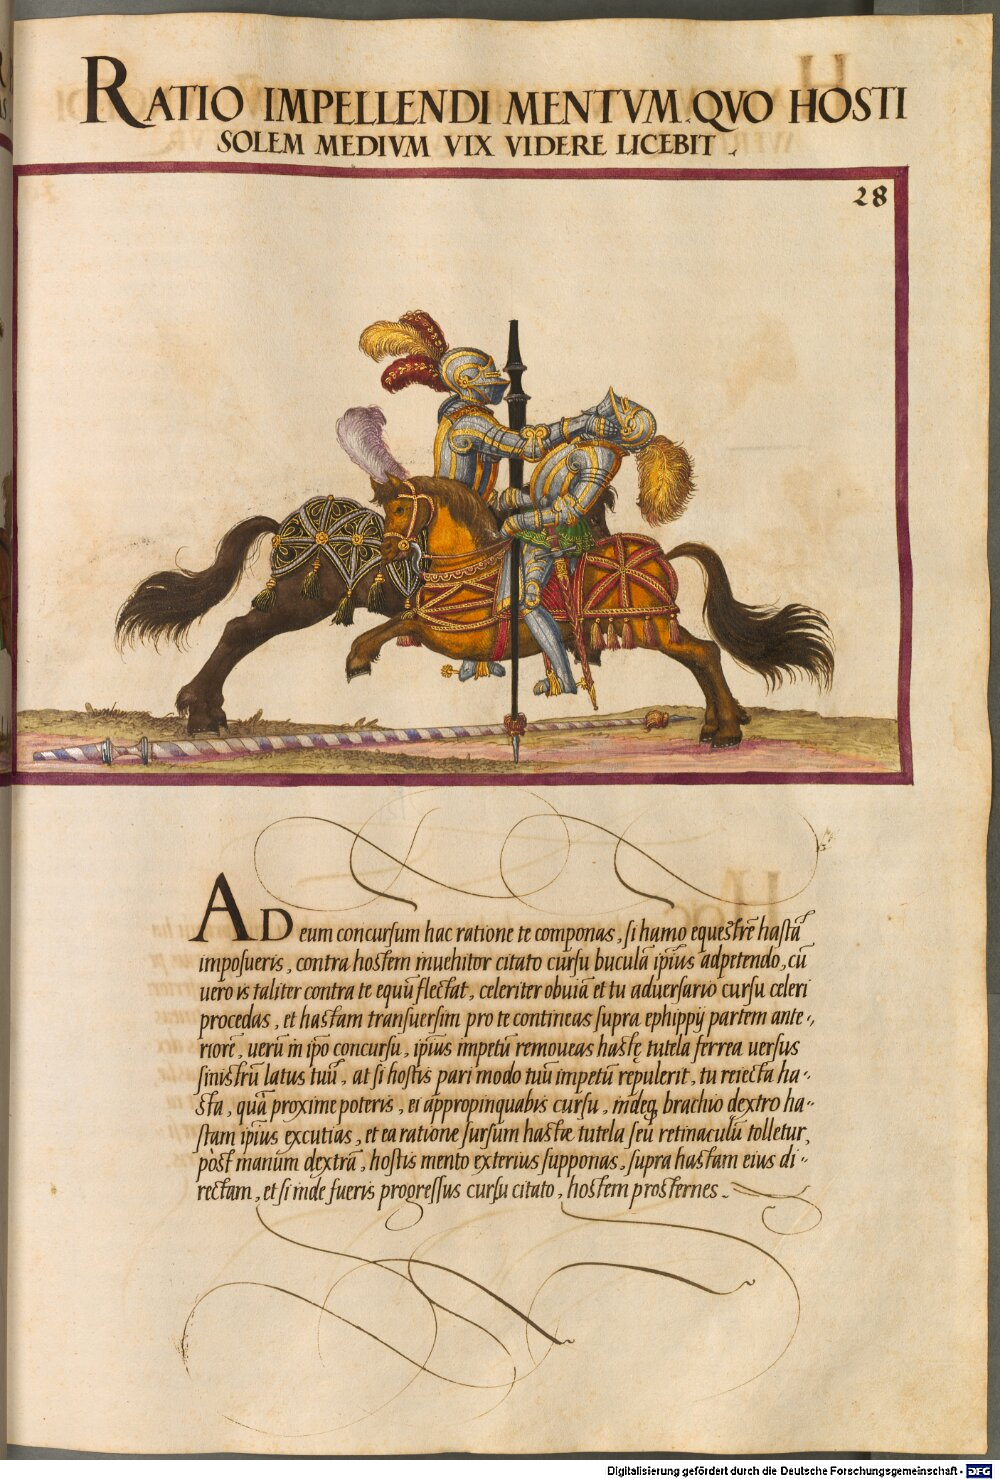 RATIO IMPELLENDI MENTVM QVO HOSTI
SOLEM MEDIVM VIX VIDERE LICEBIT.
28
AD eum concursum hac ratione te componas, si hamo equestrē hastā
imposueris, contra hostem inuehitor citato cursu buculā ipsius adpetendo, cū
uero is taliter contra te equū flectat, celeriter obuiā et tu aduersario cursu celeri
procedas, et hastam transuersim pro te contineas supra ephippij partem ante-,
riorē, uerū in ip̄o concursu, ip̄ius impetū remoueas hastę tutela ferrea uersus
sinistrū latus tuū, at si hostis pari modo tuū impetū repulerit, tu reiecta ha-
sta, quā proxime poteris, ei appropinquabis cursu, indeq̨ brachio dextro ha-
stam ip̄ius excutias, et ea ratione sursum hastæ tutela seu retinaculū tolletur,
pòst manum dextrā, hostis mento exterius supponas, supra hastam eius di-
rectam, et si inde fueris progressus cursu citato, hostem prosternes.
Digitalisierung gefördert durch die Deutsche Forschungsgemeinschaft - DFG